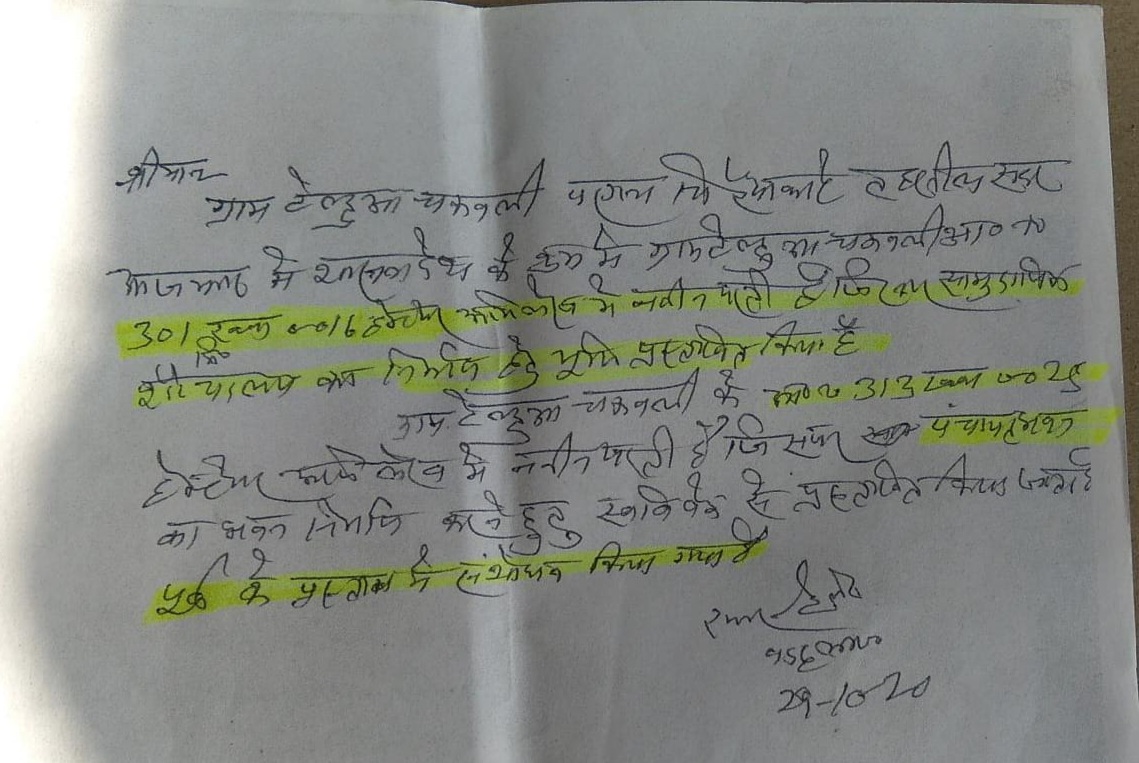 श्रीमान
ग्राम टेल्हुआ चकवली परगना चि तहसील सदर
में शासनादेश के क्रम में ग्राम टेल्हुआ चकवली आ०न०
301 रकबा 0-016 हेक्टेयर अभिलेख में नवीन परती है जिसपर सामुदायिक
शौचालय का निर्माण हेतु भूमि प्रस्तावित किया है
ग्राम टेल्हुआ चकवली के आ०न० 313 रकबा 0-028
हेक्टेयर अभिलेख में नवीन परती है जिसपर पंचायत भवन
का भवन निर्माण करने हेतु स्वविवेक से प्रस्तावित किया जाता है
पूर्व के प्रस्ताव में संशोधन किया गया है
29-10-20